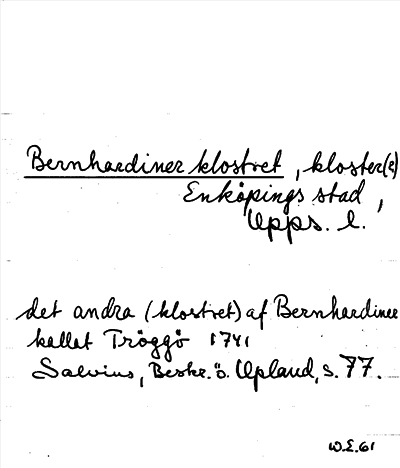 Bernhardiner klostret, kloster(?)
Enköpings stad,
Upps. l.
det andra (klostret) af Bernhardiner
kallat Tröggö 1741
Salvius, Beskr. ö. Upland, s. 77.
W.E. 61